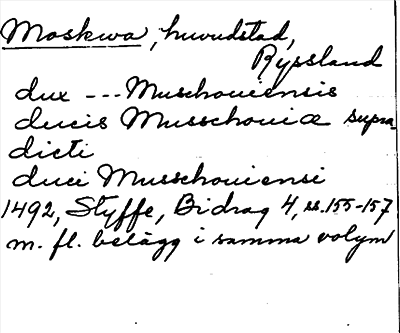 Moskwa, huvudstad,
Ryssland
dux --- Muschouiensis
ducis Musschouiæ supra
dicti
duci Musschouiensi
1492, Styffe, Bidrag 4, ss. 155-157
m. fl. belägg i samma volym